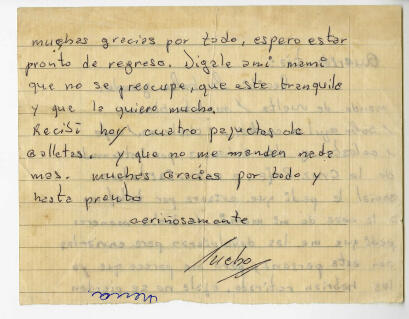 muchas gracias por todo, espero estar
pronto de regreso. Digale a mi mami
que no se preocupe, que este tranquila
y que la quiero mucho.
Recibí hoy cuatro paquetes de
galletas. y que no me manden nada
mas. muchas gracias por todo y
hasta pronto
cariñosamente